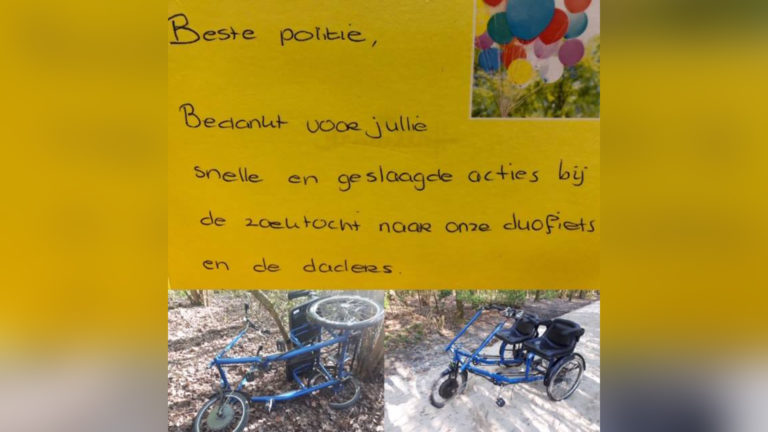 Beste politie,
Bedankt voor jullie
snelle en geslaagde acties bij
de zoektocht naar onze duofiets
en de daders.